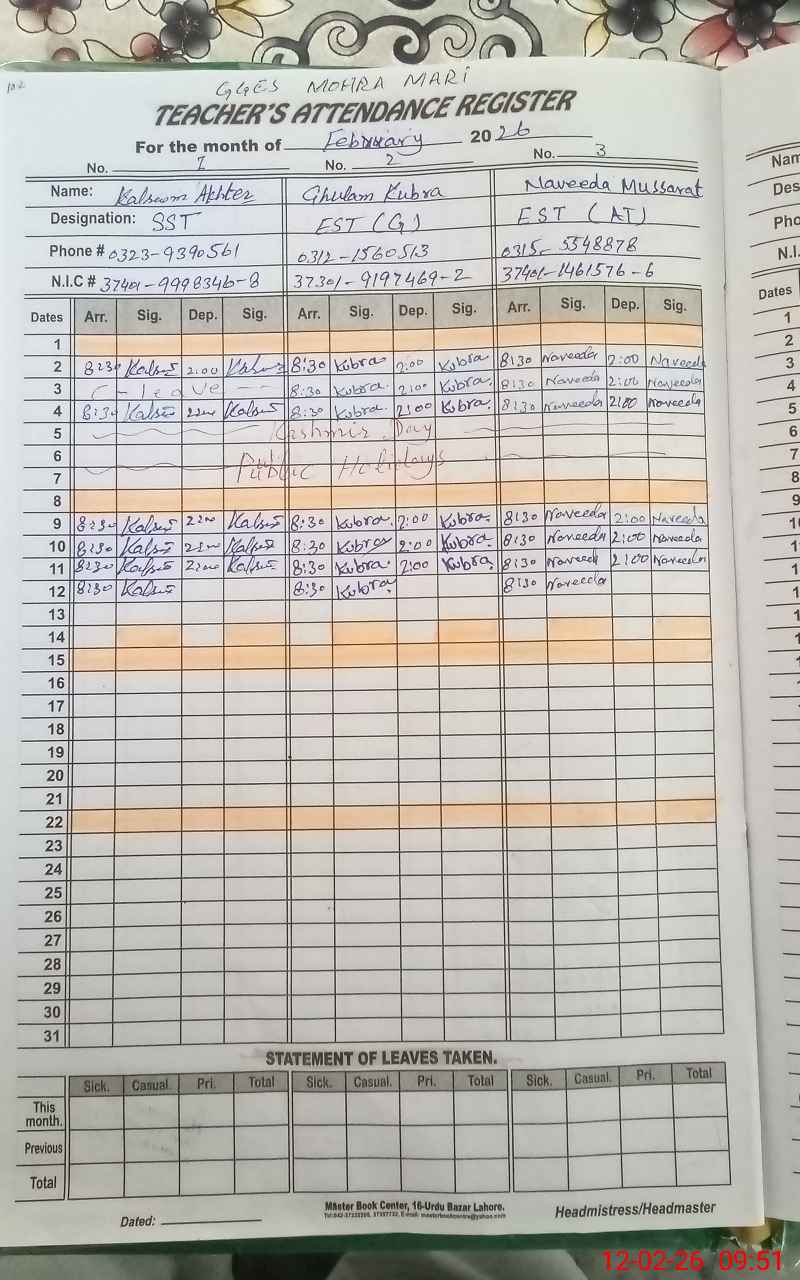 102
GGES MOHRA MARI
TEACHER'S ATTENDANCE REGISTER
For the month of February 2026
No. 1 No. 2 No. 3
Name: Kalsoom Akhter Ghulam Kubra Naveeda Mussarat
Designation: SST EST (G) EST (AT)
Phone # 0323-9390561 0312-1560513 0315-5548878
N.I.C # 37401-9998346-8 37301-9197469-2 37401-1461576-6
Dates Arr. Sig. Dep. Sig. Arr. Sig. Dep. Sig. Arr. Sig. Dep. Sig.
1
2 8:30 Kalsoom 2:00 Kalsoom 8:30 Kubra 2:00 Kubra 8:30 Naveeda 2:00 Naveeda
3 C-leave 8:30 Kubra 2:00 Kubra 8:30 Naveeda 2:00 Naveeda
4 8:30 Kalsoom 2:00 Kalsoom 8:30 Kubra 2:00 Kubra 8:30 Naveeda 2:00 Naveeda
5 Kashmir Day
6 Public Holidays
7
8
9 8:30 Kalsoom 2:00 Kalsoom 8:30 Kubra 2:00 Kubra 8:30 Naveeda 2:00 Naveeda
10 8:30 Kalsoom 2:00 Kalsoom 8:30 Kubra 2:00 Kubra 8:30 Naveeda 2:00 Naveeda
11 8:30 Kalsoom 2:00 Kalsoom 8:30 Kubra 2:00 Kubra 8:30 Naveeda 2:00 Naveeda
12 8:30 Kalsoom 8:30 Kubra 8:30 Naveeda
13
14
15
16
17
18
19
20
21
22
23
24
25
26
27
28
29
30
31
STATEMENT OF LEAVES TAKEN.
Sick. Casual. Pri. Total Sick. Casual. Pri. Total Sick. Casual. Pri. Total
This month.
Previous
Total
Dated:
Master Book Center, 16-Urdu Bazar Lahore.
Headmistress/Headmaster
12-02-26 09:51